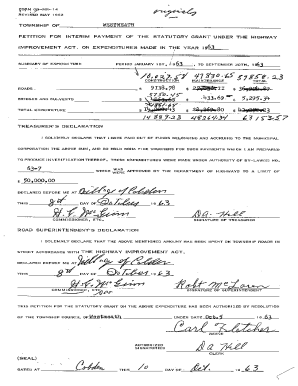 FORM GR-MR-14 originals
REVISED MAY 1952
TOWNSHIP OF WESTMEATH
PETITION FOR INTERIM PAYMENT OF THE STATUTORY GRANT UNDER THE HIGHWAY
IMPROVEMENT ACT, OR EXPENDITURES MADE IN THE YEAR 1963
SUMMARY OF EXPENDITURE PERIOD JANUARY 1ST, 1963 TO SEPTEMBER 30TH, 1963
10,027.58 47830.65 57858.23
CONSTRUCTION MAINTENANCE TOTAL
ROADS
BRIDGES AND CULVERTS 433.69 5,293.34
TOTAL EXPENDITURE
14 887.23 48264.34 63 151.57
TREASURER'S DECLARATION
I SOLEMNLY DECLARE THAT I HAVE PAID OUT OF FUNDS BELONGING AND ACCRUING TO THE MUNICIPAL
CORPORATION THE ABOVE SUM, AND DO HOLD RECEIPTED VOUCHERS FOR SUCH PAYMENTS WHICH I AM PREPARED
TO PRODUCE IN VERIFICATION THEREOF. THESE EXPENDITURES WERE MADE UNDER AUTHORITY OF BY-LAW(S) NO.
63-7 WHICH WAS APPROVED BY THE DEPARTMENT OF HIGHWAYS TO A LIMIT OF
$ 90,000.00
DECLARED BEFORE ME AT Village of Cobden
THIS 8th DAY OF October 1963
D.A. Hill
COMMISSIONER, ETC. SIGNATURE OF TREASURER
ROAD SUPERINTENDENT'S DECLARATION
I SOLEMNLY DECLARE THAT THE ABOVE MENTIONED AMOUNT HAS BEEN SPENT ON TOWNSHIP ROADS IN
STRICT ACCORDANCE WITH THE HIGHWAY IMPROVEMENT ACT.
DECLARED BEFORE ME AT Village of Cobden
THIS 8th DAY OF October 1963
Robt McLaren
COMMISSIONER, ETC. SIGNATURE OF SUPERINTENDENT
THIS PETITION FOR THE STATUTORY GRANT ON THE ABOVE EXPENDITURE HAS BEEN AUTHORIZED BY RESOLUTION
OF THE TOWNSHIP COUNCIL OF Westmeath UNDER DATE Oct. 5 1963
Carl Fletcher
REEVE
AUTHORIZED
SIGNATURES D A Hill
CLERK
(SEAL)
DATED AT Cobden THIS 10 DAY OF Oct. 1963